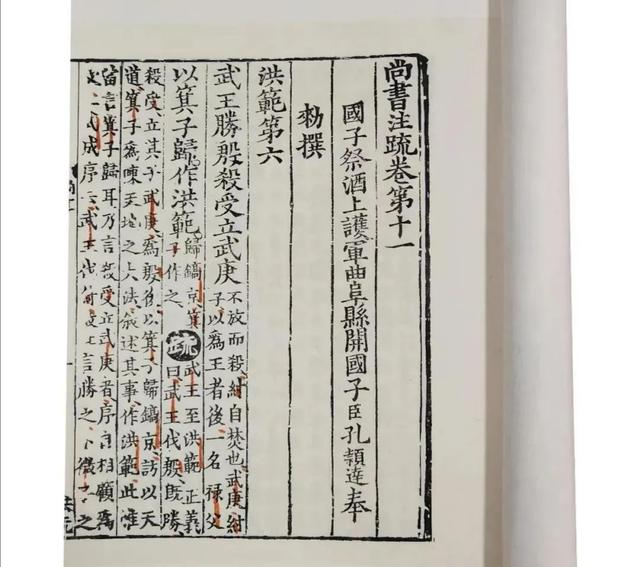 尚書注疏卷第十一
國子祭酒上護軍曲阜縣開國子臣孔穎達奉
勑撰
洪範第六
武王勝殷殺受立武庚不放而殺紂自焚也武庚紂
子以爲王者後一名祿父
以箕子歸作洪範歸鎬京箕
子作之疏武王至洪範正義
曰武王伐殷既勝
殺受立其子武庚爲殷後以箕子歸鎬京訪以天
道箕子爲陳天地之大法敘述其事作洪範此惟
當言箕子歸耳乃言殺受立武庚者序自相顧爲
文上武成序云武王伐紂故此言勝之